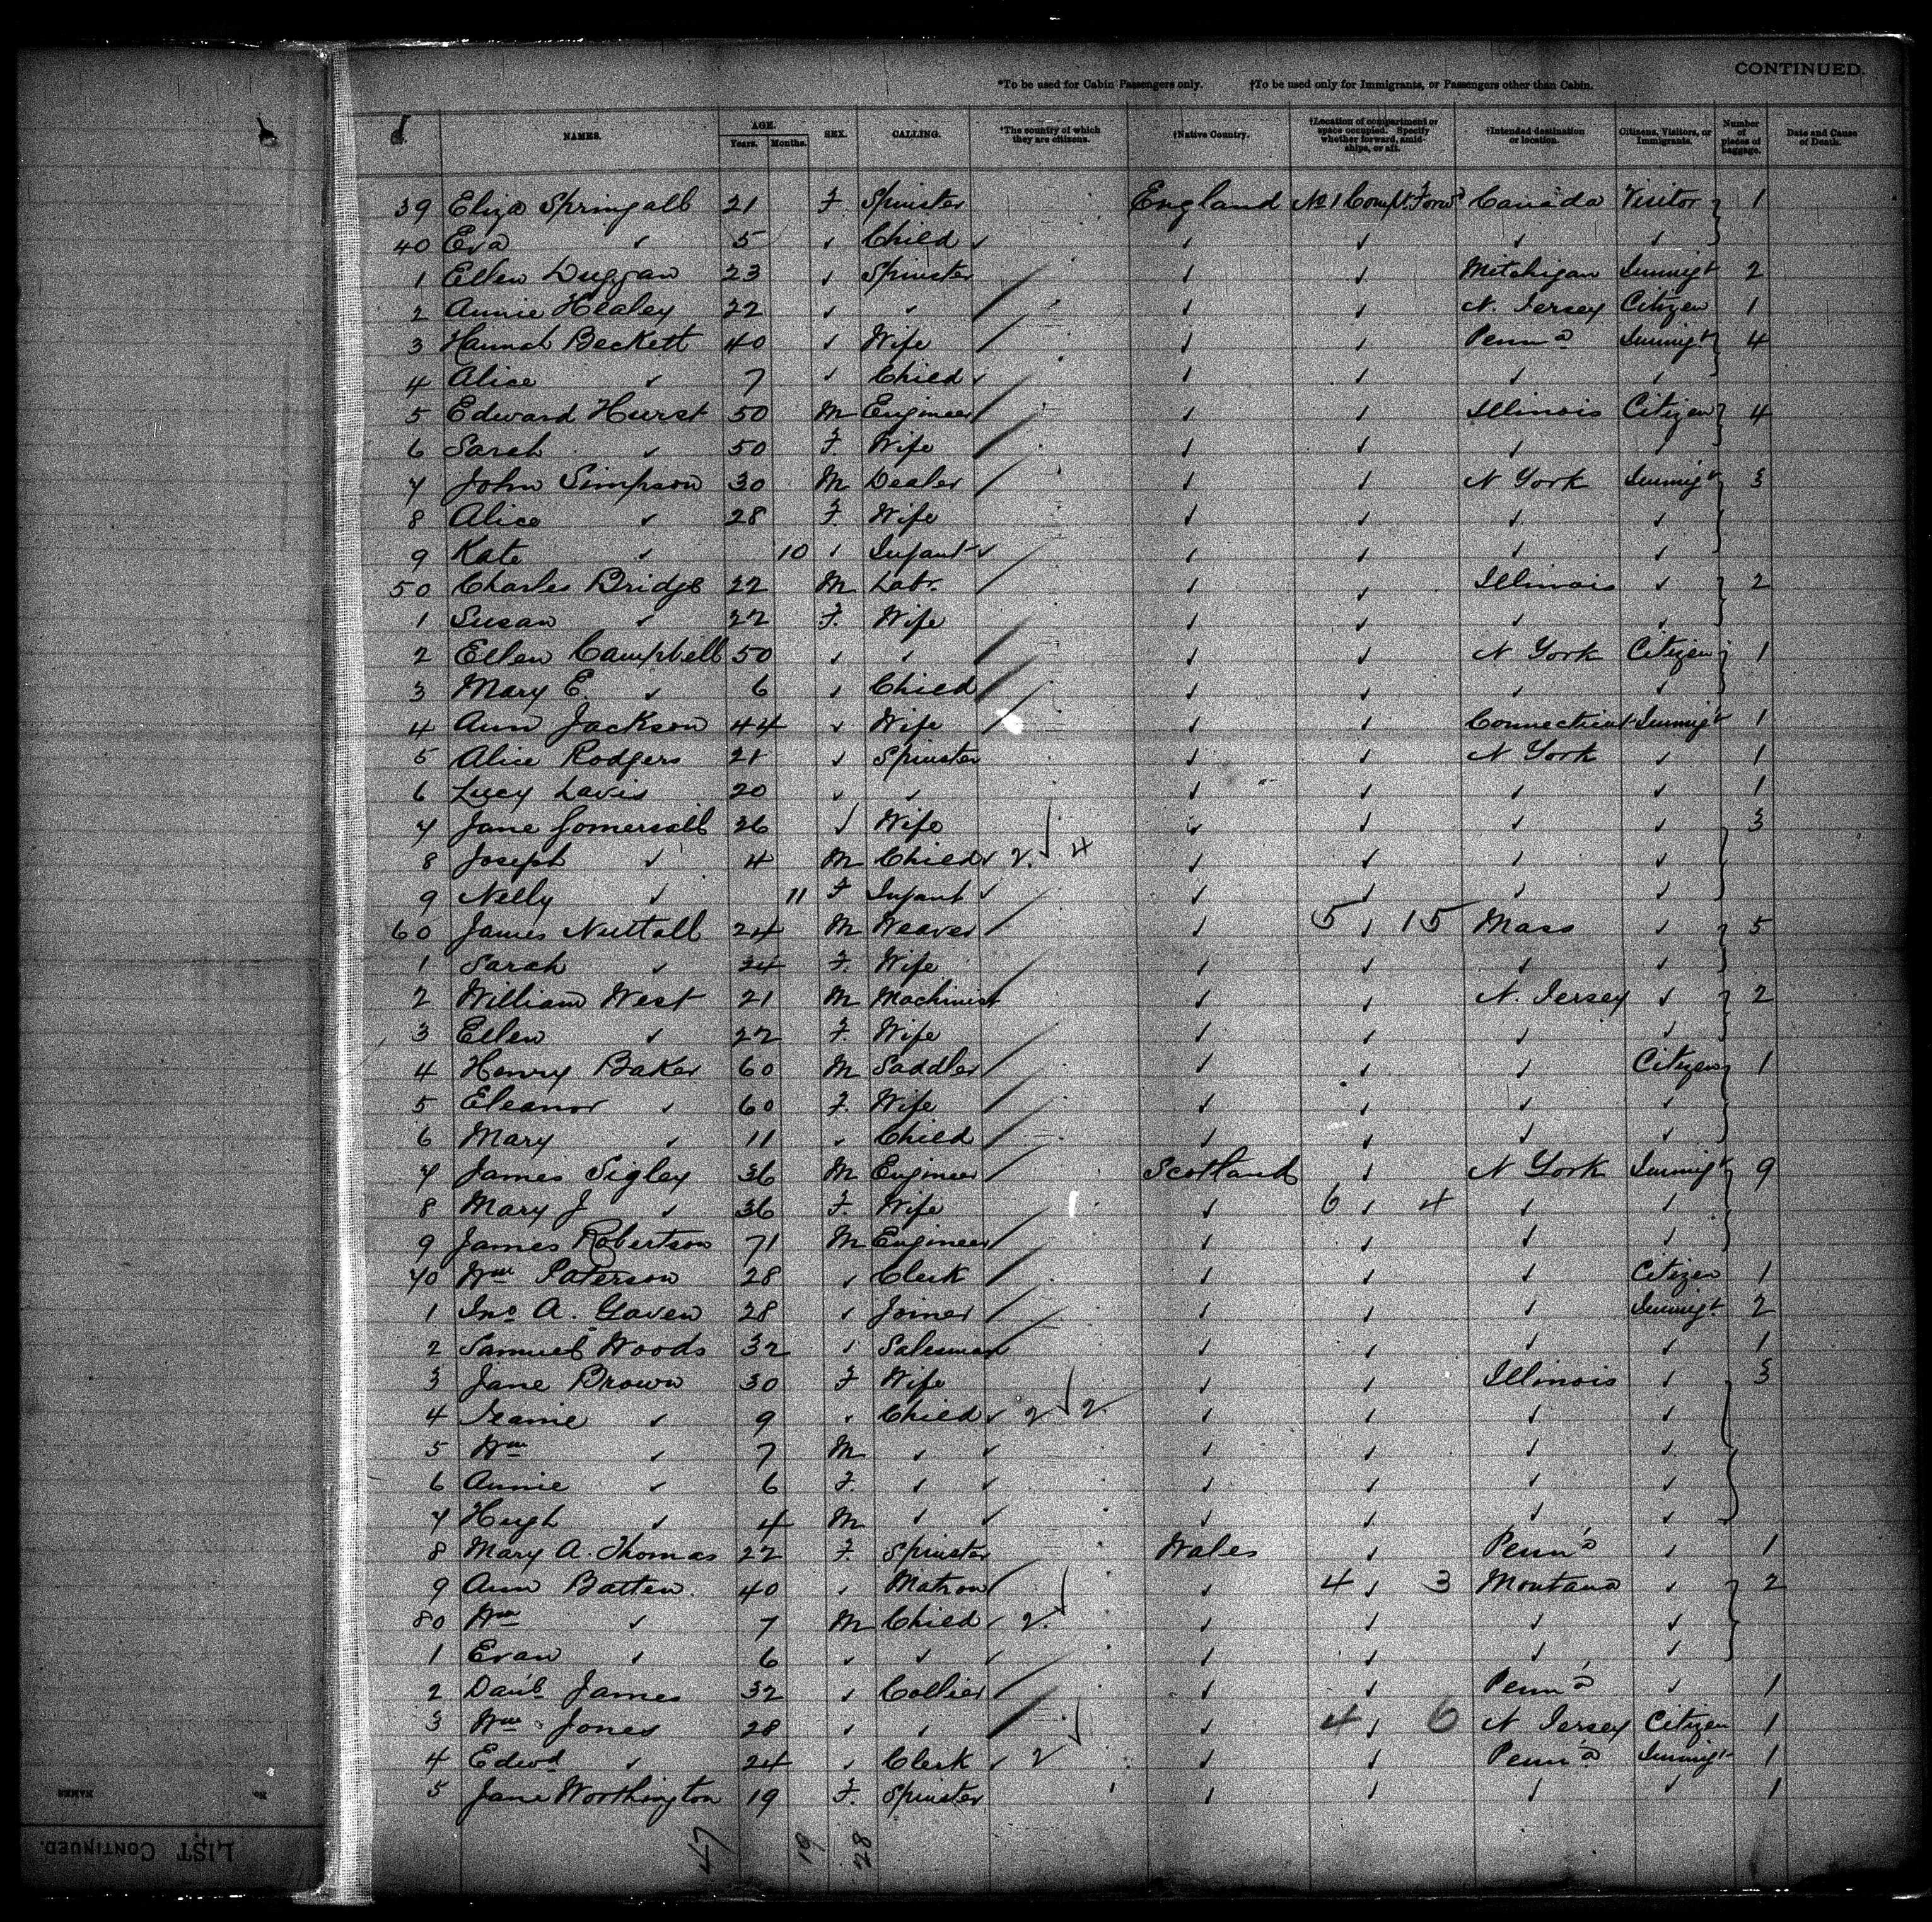 CONTINUED.
*To be used for Cabin Passengers only. †To be used only for Immigrants, or Passengers other than Cabin.
NAMES. AGE. Years. Months. SEX. CALLING. *The country of which they are citizens. †Native Country. †Location of compartment or space occupied. Specify whether forward, amidships, or aft. †Intended destination or location. Citizens, Visitors, or Immigrants. Number of pieces of baggage. Date and Cause of Death.
39 Eliza Springall 21 F Spinster England No 1 Compt. Forwd Canada Visitor 1
40 Eva ✓ 5 ✓ Child ✓ ✓ ✓ ✓ ✓
1 Ellen Duggan 23 ✓ Spinster ✓ ✓ Mitchigan Immigt 2
2 Annie Healey 22 ✓ ✓ ✓ ✓ N. Jersey Citizen 1
3 Hannah Beckett 40 ✓ Wife ✓ ✓ Penna Immigt 4
4 Alice ✓ 7 ✓ Child ✓ ✓ ✓ ✓ ✓
5 Edward Hurst 50 M Engineer ✓ ✓ Illinois Citizen 4
6 Sarah ✓ 50 F. Wife ✓ ✓ ✓ ✓
7 John Simpson 30 M Dealer ✓ ✓ N York Immigt 3
8 Alice ✓ 28 F. Wife ✓ ✓ ✓ ✓
9 Kate ✓ 10 ✓ Infant ✓ ✓ ✓ ✓ ✓
50 Charles Bridge 22 M Labr. ✓ ✓ Illinois ✓ 2
1 Susan ✓ 22 F. Wife ✓ ✓ ✓ ✓
2 Ellen Campbell 50 ✓ ✓ ✓ ✓ N York Citizen 1
3 Mary E. ✓ 6 ✓ Child ✓ ✓ ✓ ✓
4 Ann Jackson 44 ✓ Wife ✓ ✓ Connecticut Immigt 1
5 Alice Rodgers 21 ✓ Spinster ✓ ✓ N York ✓ 1
6 Lucy Davis 20 ✓ ✓ ✓ ✓ ✓ ✓ 1
7 Jane Somersall 26 ✓ Wife ✓ ✓ ✓ ✓ 3
8 Joseph ✓ 4 M Child ✓ 2 ✓ 4 ✓ ✓ ✓ ✓
9 Nelly ✓ 11 F Infant ✓ ✓ ✓ ✓ ✓
60 James Nuttall 24 M Weaver ✓ 5 ✓ 15 Mass ✓ 5
1 Sarah ✓ 24 F. Wife ✓ ✓ ✓ ✓
2 William West 21 M Machinist ✓ ✓ N. Jersey ✓ 2
3 Ellen ✓ 22 F. Wife ✓ ✓ ✓ ✓
4 Henry Baker 60 M Saddler ✓ ✓ ✓ Citizens 1
5 Eleanor ✓ 60 F. Wife ✓ ✓ ✓ ✓
6 Mary ✓ 11 ✓ Child ✓ ✓ ✓ ✓
7 James Sigley 36 M Engineer Scotland ✓ N York Immigt 9
8 Mary J ✓ 36 F. Wife ✓ 6 ✓ 4 ✓ ✓
9 James Robertson 71 M Engineer ✓ ✓ ✓ ✓
70 Wm Paterson 28 ✓ Clerk ✓ ✓ ✓ Citizen 1
1 Jno A. Gaven 28 ✓ Joiner ✓ ✓ ✓ Immigt 2
2 Samuel Woods 32 ✓ Salesman ✓ ✓ ✓ ✓ 1
3 Jane Brown 30 F Wife ✓ ✓ Illinois ✓ 3
4 Jeanie ✓ 9 ✓ Child ✓ 2 ✓ 2 ✓ ✓ ✓ ✓
5 Wm ✓ 7 M ✓ ✓ ✓ ✓ ✓ ✓
6 Annie ✓ 6 F. ✓ ✓ ✓ ✓ ✓ ✓
7 Hugh ✓ 4 M ✓ ✓ ✓ ✓ ✓ ✓
8 Mary A. Thomas 22 F. Spinster Wales ✓ Penn'a ✓ 1
9 Ann Batten 40 ✓ Matron ✓ 4 ✓ 3 Montana ✓ 2
80 Wm ✓ 7 M Child ✓ 2 ✓ ✓ ✓ ✓ ✓
1 Evan ✓ 6 ✓ ✓ ✓ ✓ ✓ ✓ ✓
2 Danl James 32 ✓ Collier ✓ ✓ Penn'a ✓ 1
3 Wm Jones 28 ✓ ✓ ✓ 4 ✓ 6 N Jersey Citizen 1
4 Edwd ✓ 24 ✓ Clerk ✓ 2 ✓ ✓ ✓ Penn'a Immigt 1
5 Jane Worthington 19 F. Spinster ✓ ✓ ✓ ✓ 1
47 19 28
No. NAMES
LIST CONTINUED.